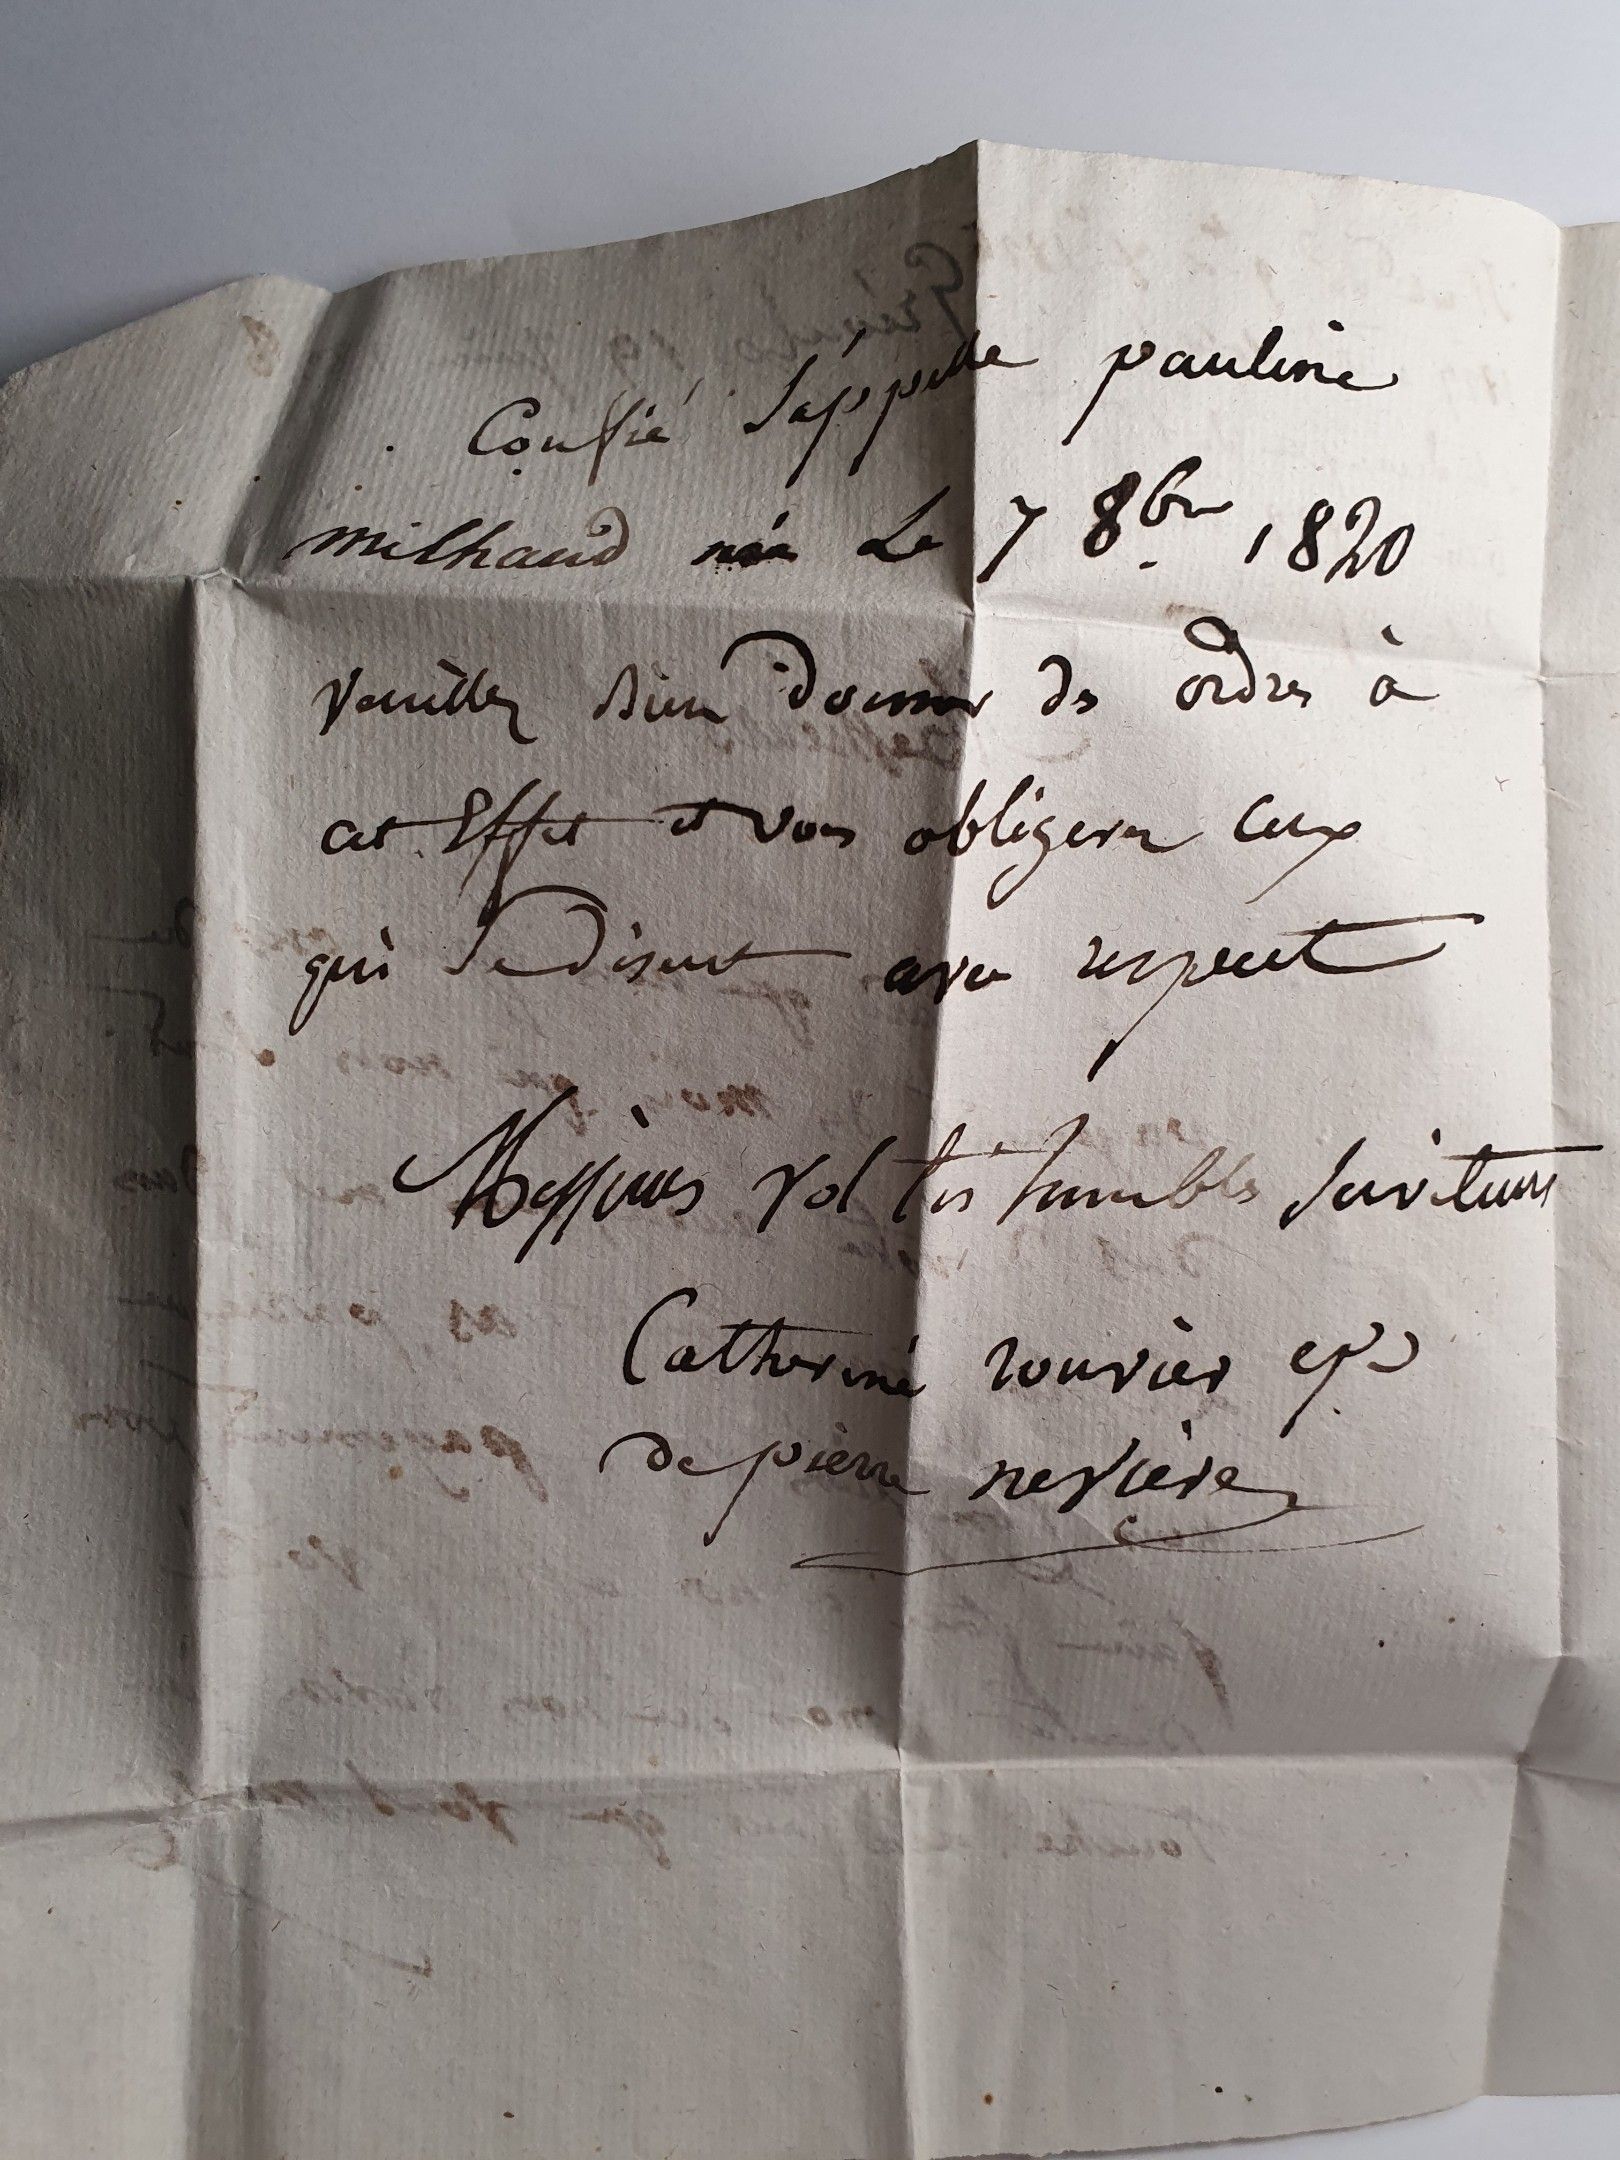 Confié s'appelle pauline
milhaud née Le 7 8bre 1820
veuillez bien donner des ordres à
cet Effet et vous obligerez ceux
qui se disent avec respect
Messieurs vos très humbles serviteurs
Catherine rouvier eps
de pierre neviere